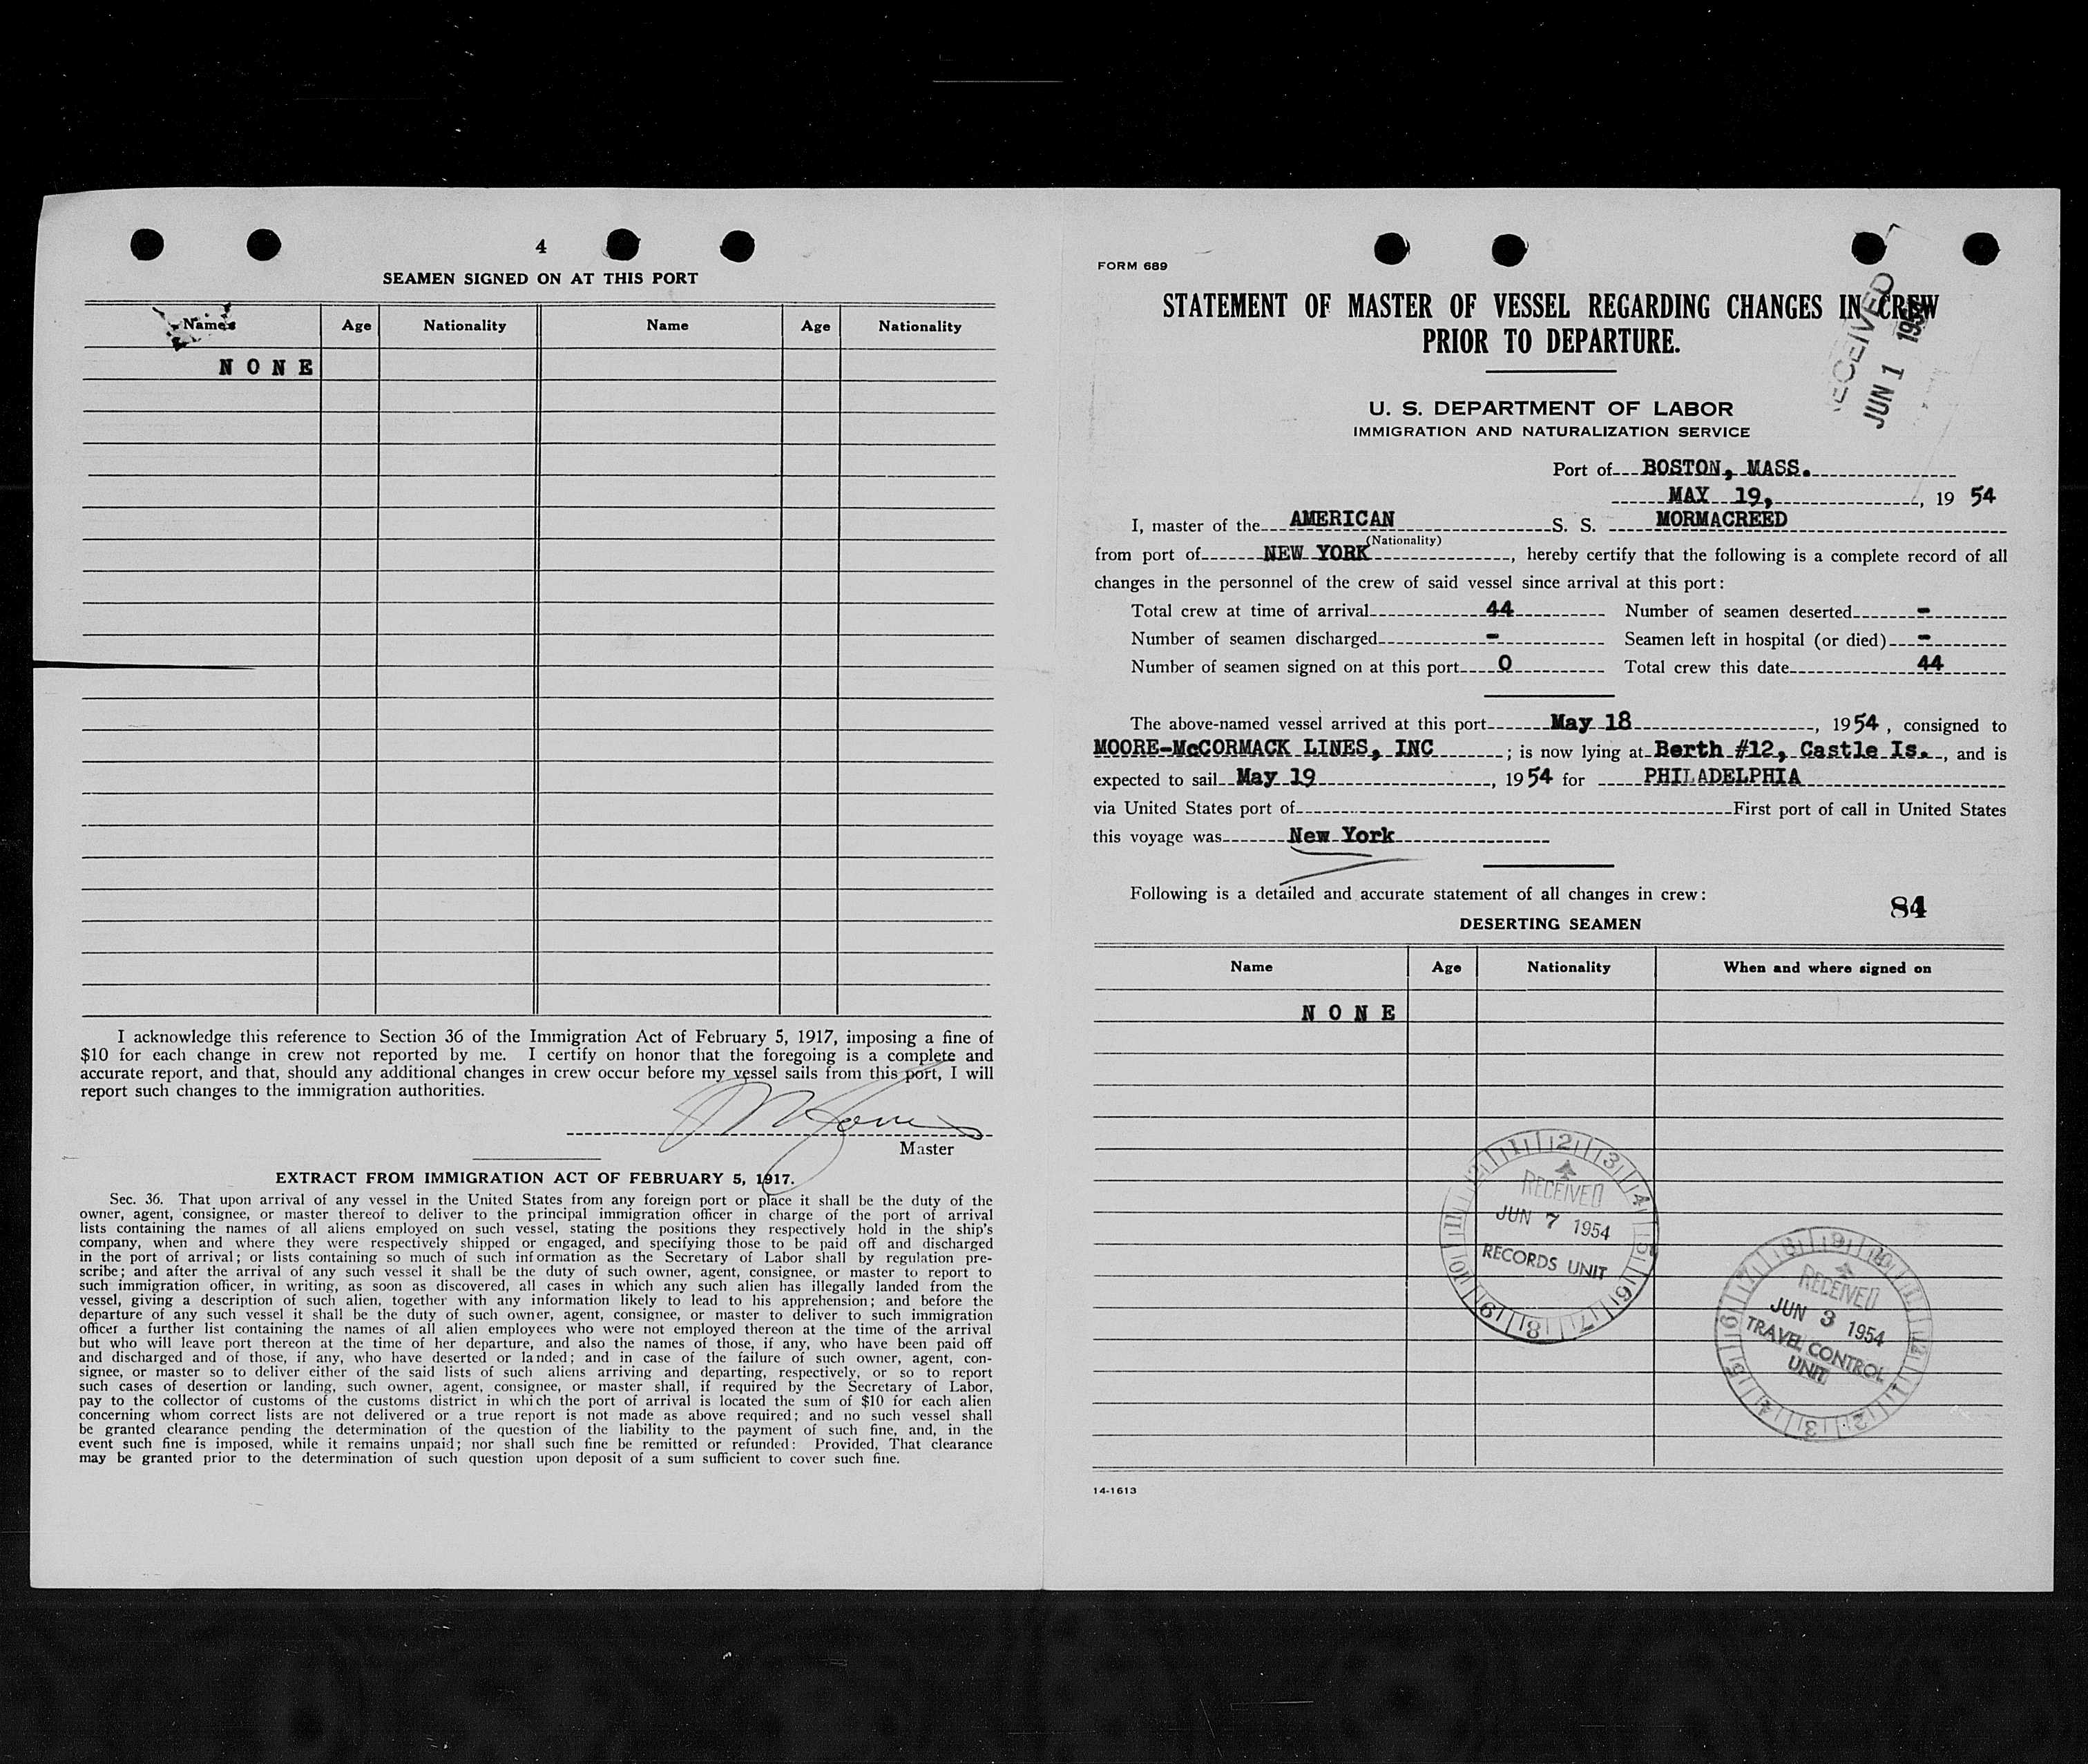 4
SEAMEN SIGNED ON AT THIS PORT
Names Age Nationality Name Age Nationality
N O N E
I acknowledge this reference to Section 36 of the Immigration Act of February 5, 1917, imposing a fine of
$10 for each change in crew not reported by me. I certify on honor that the foregoing is a complete and
accurate report, and that, should any additional changes in crew occur before my vessel sails from this port, I will
report such changes to the immigration authorities.
Master
EXTRACT FROM IMMIGRATION ACT OF FEBRUARY 5, 1917.
Sec. 36. That upon arrival of any vessel in the United States from any foreign port or place it shall be the duty of the
owner, agent, consignee, or master thereof to deliver to the principal immigration officer in charge of the port of arrival
lists containing the names of all aliens employed on such vessel, stating the positions they respectively hold in the ship's
company, when and where they were respectively shipped or engaged, and specifying those to be paid off and discharged
in the port of arrival; or lists containing so much of such information as the Secretary of Labor shall by regulation pre-
scribe; and after the arrival of any such vessel it shall be the duty of such owner, agent, consignee, or master to report to
such immigration officer, in writing, as soon as discovered, all cases in which any such alien has illegally landed from the
vessel, giving a description of such alien, together with any information likely to lead to his apprehension; and before the
departure of any such vessel it shall be the duty of such owner, agent, consignee, or master to deliver to such immigration
officer a further list containing the names of all alien employees who were not employed thereon at the time of the arrival
but who will leave port thereon at the time of her departure, and also the names of those, if any, who have been paid off
and discharged and of those, if any, who have deserted or landed; and in case of the failure of such owner, agent, con-
signee, or master so to deliver either of the said lists of such aliens arriving and departing, respectively, or so to report
such cases of desertion or landing, such owner, agent, consignee, or master shall, if required by the Secretary of Labor,
pay to the collector of customs of the customs district in which the port of arrival is located the sum of $10 for each alien
concerning whom correct lists are not delivered or a true report is not made as above required; and no such vessel shall
be granted clearance pending the determination of the question of the liability to the payment of such fine, and, in the
event such fine is imposed, while it remains unpaid; nor shall such fine be remitted or refunded: Provided, That clearance
may be granted prior to the determination of such question upon deposit of a sum sufficient to cover such fine.
FORM 689
STATEMENT OF MASTER OF VESSEL REGARDING CHANGES IN CREW
PRIOR TO DEPARTURE.
RECEIVED
JUN 1 1954
U. S. DEPARTMENT OF LABOR
IMMIGRATION AND NATURALIZATION SERVICE
Port of BOSTON, MASS.
MAY 19, , 19 54
I, master of the AMERICAN S. S. MORMACREED
(Nationality)
from port of NEW YORK , hereby certify that the following is a complete record of all
changes in the personnel of the crew of said vessel since arrival at this port:
Total crew at time of arrival 44 Number of seamen deserted -
Number of seamen discharged - Seamen left in hospital (or died) -
Number of seamen signed on at this port 0 Total crew this date 44
The above-named vessel arrived at this port May 18 , 1954 , consigned to
MOORE-McCORMACK LINES, INC ; is now lying at Berth #12, Castle Is. , and is
expected to sail May 19 , 1954 for PHILADELPHIA
via United States port of First port of call in United States
this voyage was New York
Following is a detailed and accurate statement of all changes in crew:
84
DESERTING SEAMEN
Name Age Nationality When and where signed on
N O N E
RECEIVED
JUN 7 1954
RECORDS UNIT
RECEIVED
JUN 3 1954
TRAVEL CONTROL
UNIT
14-1613